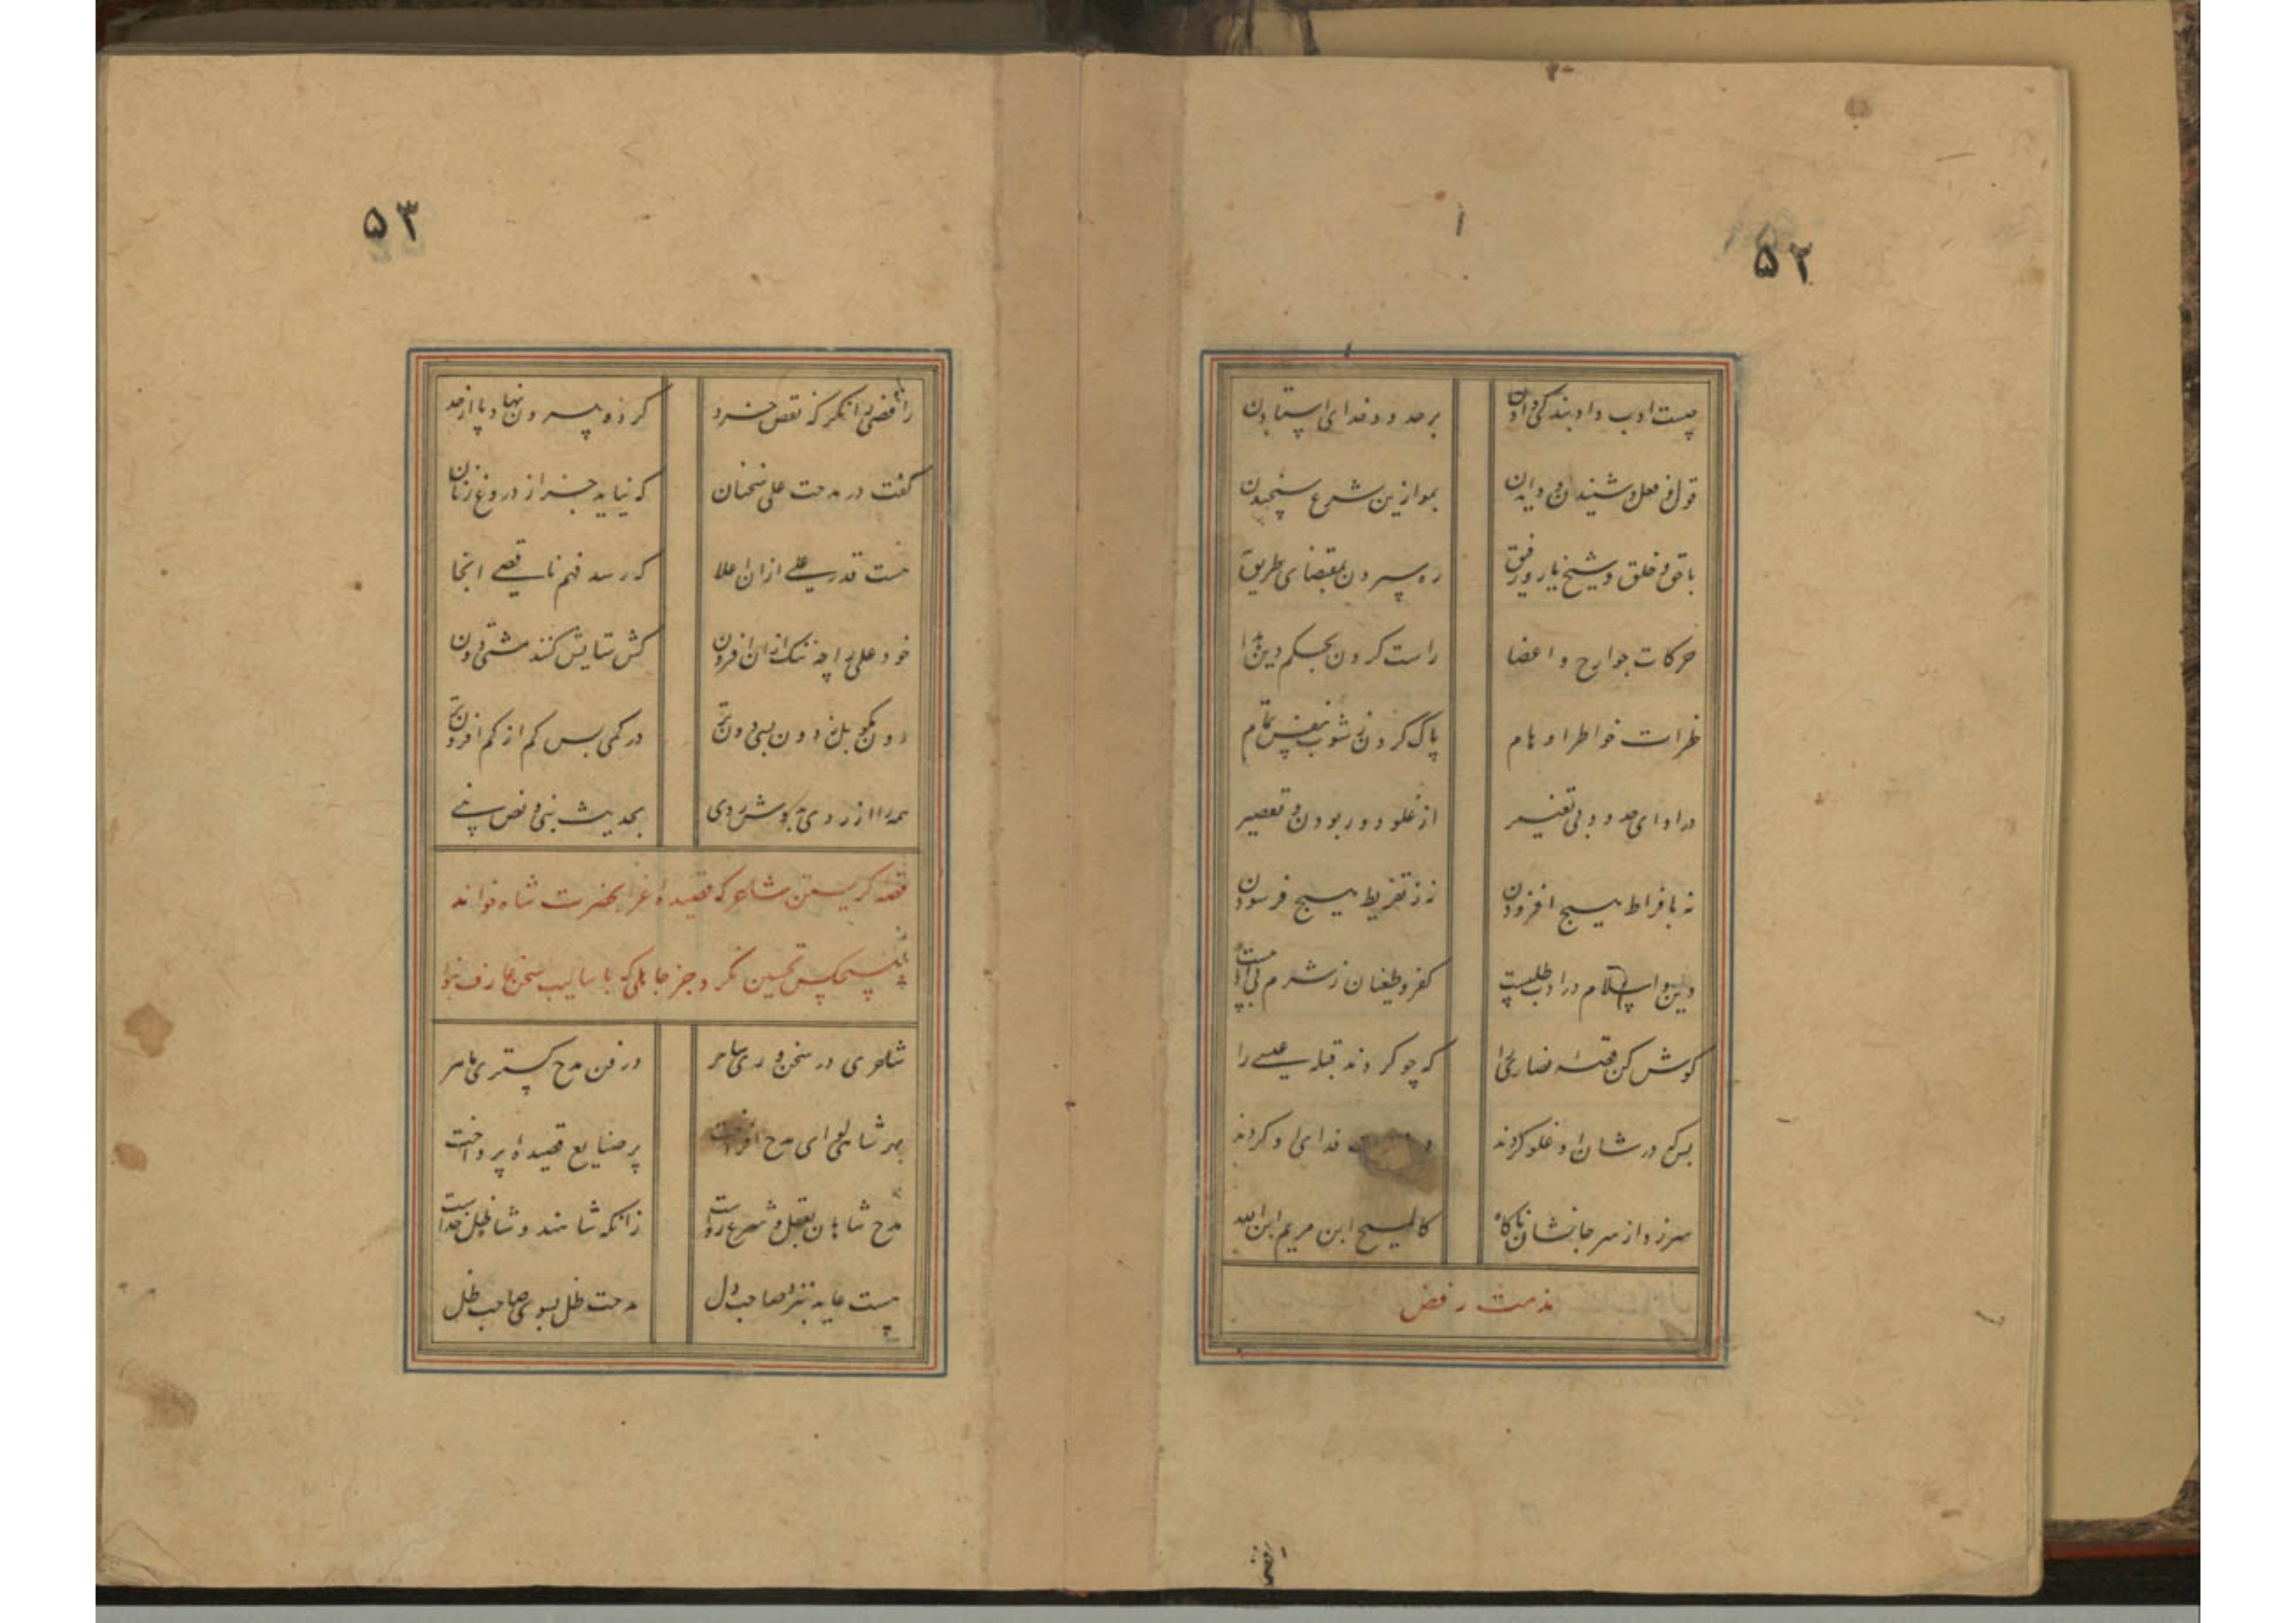 ۵۲
چیست ادب داد بندگی دادن بر حدود خدای استادن
قول و فعل و شنیدن و دیدن بموازین شرع سنجیدن
با حق و خلق و شیخ و یار و رفیق ره سپردن بمقتضای طریق
حرکات جوارح و اعضا راست کردن بحکم دین خدا
خطرات خواطر و اوهام پاک کردن ز شوب نفس تمام
در ادای حدود بی تغییر از غلو دور بودن و تقصیر
نه بافراط هیچ افزودن نه ز تفریط هیچ فرسودن
دین و اسلام در ادب طلبیست کفر و طغیان ز شوم بی ادبیست
گوش کن قصه نصاری را که چو کردند قبله عیسی را
بس که در شان او غلو کردند خدای او کردند
سر زد از سر جانشان ناگاه کالمسیح ابن مریم ابن الله
مذمت رفض
۵۳
رافضی را نگر که نقص خرد کرد و بیرون نهاد پا از حد
گفت در مدحت علی سخنان که نیاید جز از دروغ زنان
هست قدر علی از ان اعلا که رسد فهم ناقصی انجا
خود علی را چه ننگ ازان افزون کش ستایش کنند مشتی دون
دون مگو بل ز دون بسی دون تر در کمی بس کم از کم افزون تر
همه را از ره وی بگوش ردی بحدیث نبی و نص نبی
قصه گریستن شاعر که قصیده غرا بحضرت شاه خواند
هیچکس تحسین نکرد جز جاهلی که باسالیب سخن عارف نبود
شاعری در سخنوری ساحر در فن مدح گستری ماهر
بهر شاهی لوای مدح افراخت پر صنایع قصیده پرداخت
مدح شاهان بعقل و شرع رواست زانکه شاهند و شاه ظل خداست
هست عاید بنزد صاحب دل مدحت ظل بسوی صاحب ظل